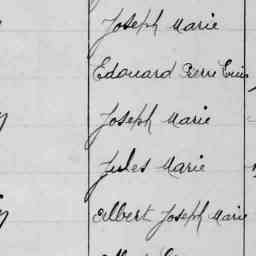 Joseph Marie
Edouard Pierre
Joseph Marie
Jules Marie
Albert Joseph Marie